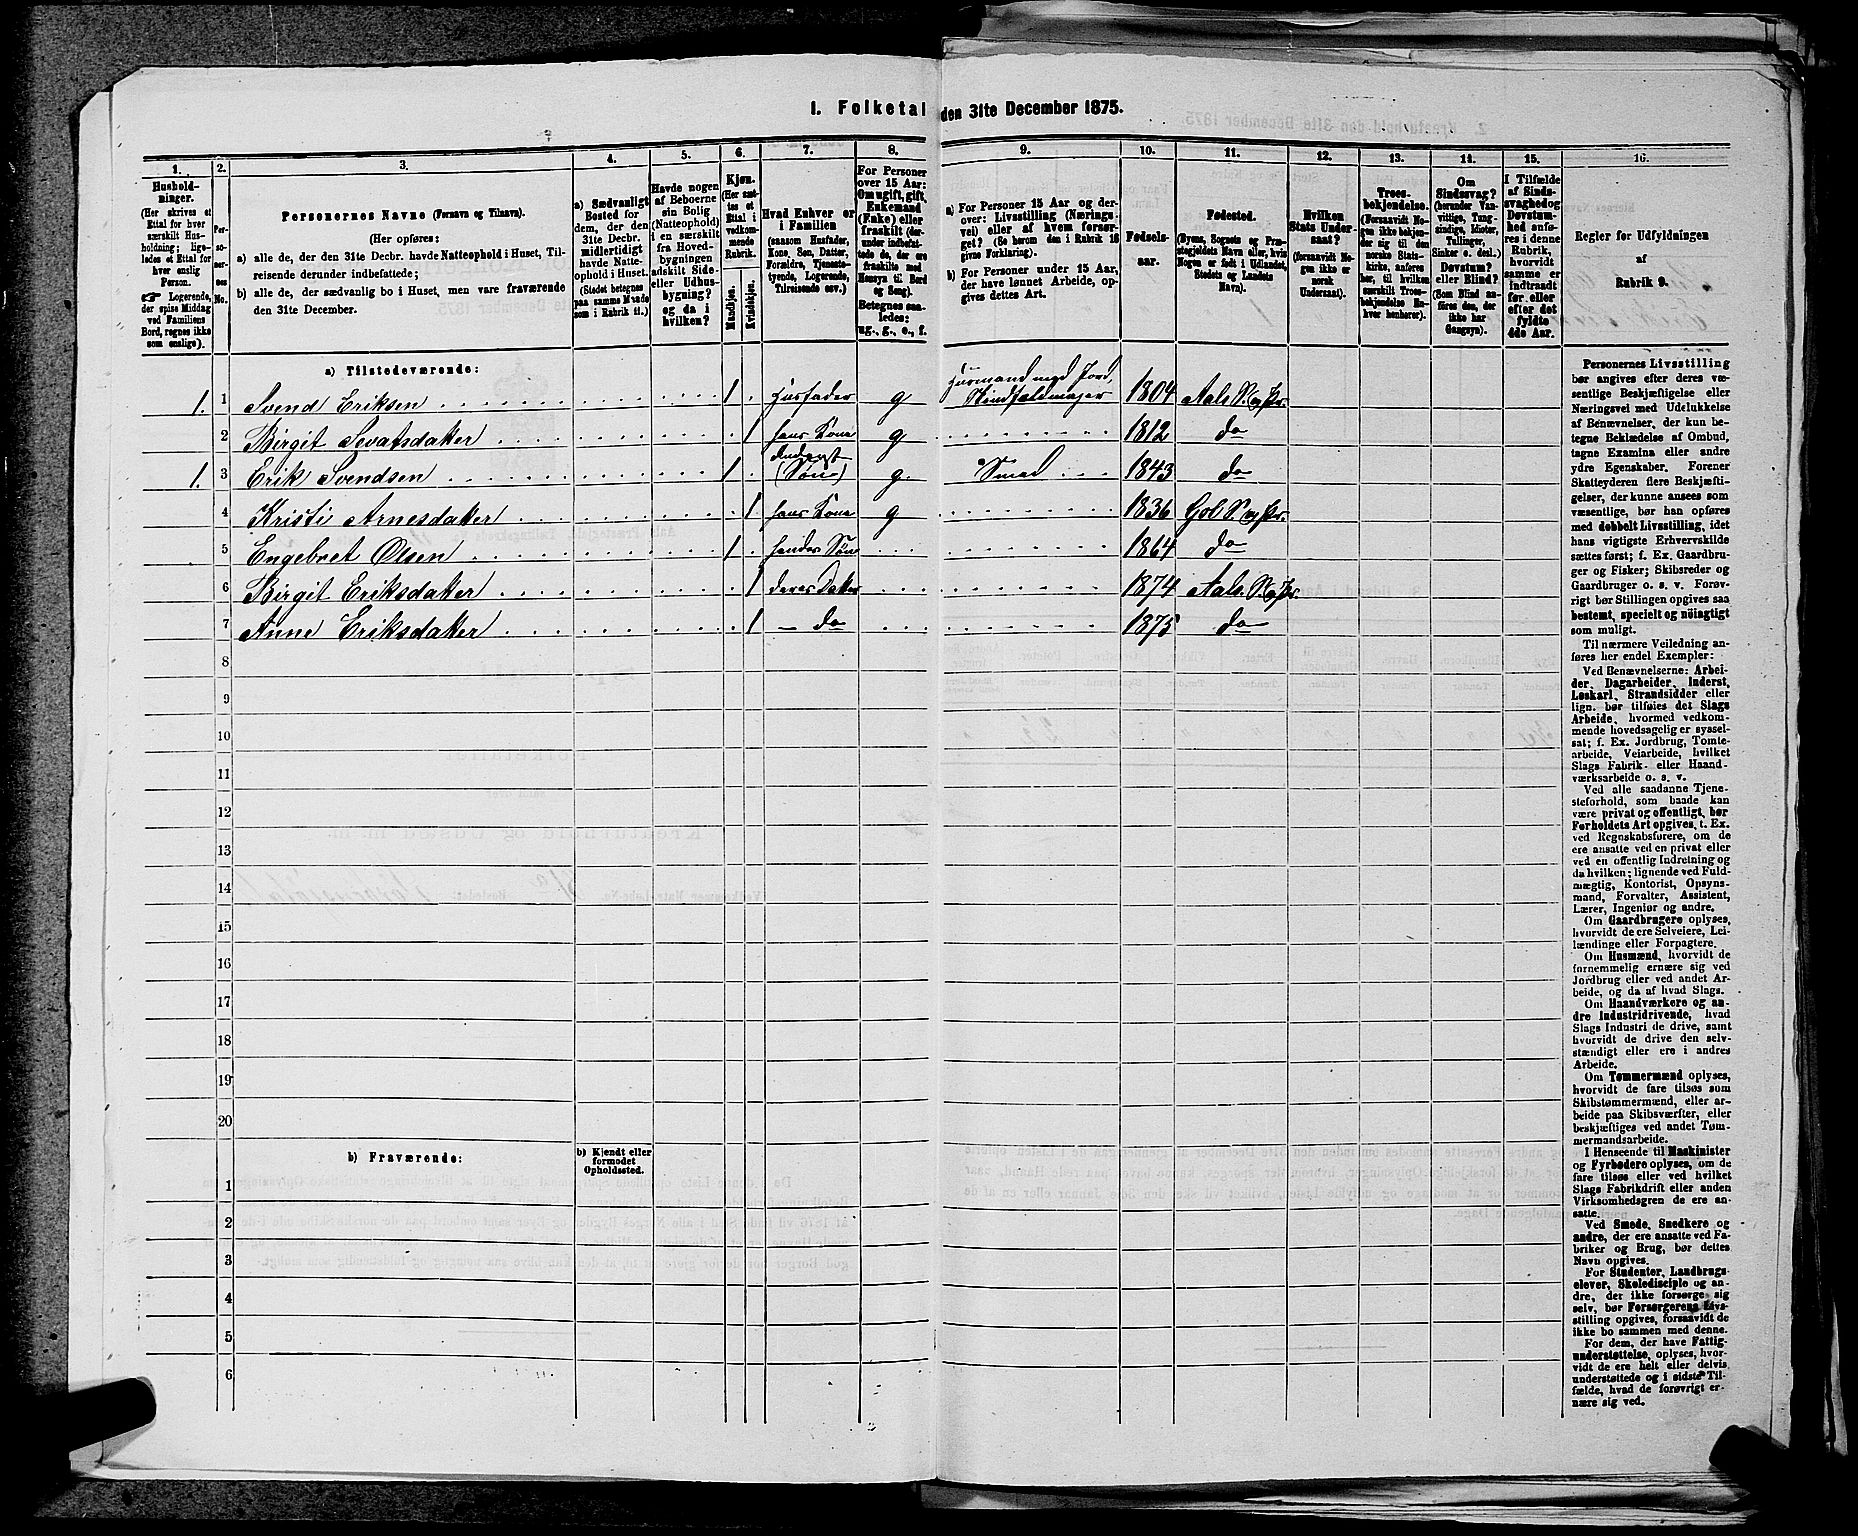 1. Folketal den 31te December 1875.
1. 2. 3. 4. 5. 6. 7. 8. 9. 10. 11. 12. 13. 14. 15. 16.
Hushold-
ninger.
(Her skrives et
Ettal for hver
særskilt Hus-
holdning; lige-
ledes et Ettal for
hver enslig
Person.
☞ Logerende,
der spise Middag
ved Familiens
Bord, regnes ikke
som enslige).
Per-
so-
ner-
nes
No.
Personernes Navne (Fornavn og Tilnavn).
(Her opføres:
a) alle de, der den 31te Decbr. havde Natteophold i Huset, Til-
reisende derunder indbefattede;
b) alle de, der sædvanlig bo i Huset, men vare fraværende
den 31te December.
a) Sædvanligt
Bosted for
dem, der den
31te Decbr.
midlertidigt
havde Natte-
ophold i Huset.
(Stedet betegnes
paa samme Maade
som i Rubrik 11.)
Havde nogen
af Beboerne
sin Bolig
(Natteophold)
i en særskilt
fra Hoved-
bygningen
adskilt Side-
eller Udhus-
bygning?
og da i
hvilken?
Kjøn.
(Her sæt-
tes et
Ettal i
vedkom-
mende
Rubrik.
Mandkjøn.
Kvindekjøn.
Hvad Enhver er
i Familien
(saasom Husfader,
Kone, Søn, Datter,
Forældre, Tjeneste-
tyende, Logerende,
Tilreisende osv.)
For Personer
over 15 Aar:
Om ugift, gift,
Enkemand
(Enke) eller
fraskilt (der-
under indbefat-
tede de, der ere
fraskilte med
Hensyn til Bord
og Seng).
Betegnes saa-
ledes:
ug., g., e., f.
a) For Personer 15 Aar og der-
over: Livsstilling (Nærings-
vei) eller af hvem forsør-
get? (Se herom den i Rubrik 16
givne Forklaring).
b) For Personer under 15 Aar,
der have lønnet Arbeide, op-
gives dettes Art.
Fødsels-
aar.
Fødested.
(Byens, Sognets og Præ-
stegjeldets Navn eller, hvis
Nogen er født i Udlandet,
Stedets og Landets
Navn).
Hvilken
Stats Under-
saat?
(forsaavidt No-
gen ikke er
norsk
Undersaat).
Troes-
bekjendelse.
(Forsaavidt No-
gen ikke bekjen-
der sig til den
norske Stats-
kirke, anføres
her, til hvilken
særskilt Troes-
bekjendelse En-
hver henhører).
Om
Sindssvag?
(herunder Van-
vittige, Tung-
sindige, Idioter,
Tullinger,
Sinker o. desl.)
Døvstum?
eller Blind?
(Som Blind an-
føres den, der
ikke har
Gangsyn).
I Tilfælde
af Sinds-
svaghed og
Døvstum-
hed anfø-
res i denne
Rubrik,
hvorvidt
samme er
indtraadt
før eller
efter det
fyldte
4de Aar.
Regler for Udfyldningen
af
Rubrik 9.
a) Tilstedeværende:
1. 1 Svend Eriksen 1 Husfader g Husmand med Jord, Skindfeldmager 1804 Aals S. og Pr.
2 Birgit Sevatsdatter 1 hans Kone g 1812 do
1. 3 Erik Svendsen 1 Inderst (Søn) g. Smed 1843 do
4 Kristi Arnesdatter 1 hans Kone g 1836 Gol S. og Pr.
5 Engebret Olsen 1 hendes Søn 1864 do
6 Birgit Eriksdatter 1 deres Datter 1874 Aals S. og Pr.
7 Anne Eriksdatter 1 – do 1875 do
8
9
10
11
12
13
14
15
16
17
18
19
20
b) Fraværende:
b) Kjendt eller
formodet
Opholdssted.
1
2
3
4
5
6
Personernes Livsstilling
bør angives efter deres væ-
sentlige Beskjæftigelse eller
Næringsvei med Udelukkelse
af Benævnelser, der kun be-
tegne Beklædelse af Ombud,
tagne Examina eller andre
ydre Egenskaber. Forener
Skatteyderen flere Beskjæfti-
gelser, der kunne ansees som
væsentlige, bør han opføres
med dobbelt Livsstilling, idet
hans vigtigste Erhvervskilde
sættes først; f. Ex. Gaardbru-
ger og Fisker; Skibsreder og
Gaardbruger o. s. v. Forøv-
rigt bør Stillingen opgives saa
bestemt, specielt og nöiagtigt
som muligt.
Til nærmere Veiledning an-
føres her endel Exempler:
Ved Benævnelserne: Arbei-
der, Dagarbeider, Inderst,
Løskarl, Strandsidder eller
lign. bør tilføies det Slags
Arbeide, hvormed vedkom-
mende hovedsagelig er syssel-
sat; f. Ex. Jordbrug, Tomte-
arbeide, Veiarbeide, hvilket
Slags Fabrik- eller Haand-
værksarbeide o. s. v.
Ved alle saadanne Tjene-
steforhold, som baade kan
være privat og offentligt, bør
Forholdets Art opgives, t. Ex.
ved Regnskabsførere, om de
ere ansatte ved en privat eller
ved en offentlig Indretning og
da hvilken; lignende ved Fuld-
mægtig, Kontorist, Opsyns-
mand, Forvalter, Assistent,
Lærer, Ingeniør og andre.
Om Gaardbrugere oplyses,
hvorvidt de ere Selveiere, Lei-
lændinge eller Forpagtere.
Om Husmænd, hvorvidt de
fornemmelig ernære sig ved
Jordbrug eller ved andet Ar-
beide, og da af hvad Slags.
Om Haandværkere og an-
dre Industridrivende, hvad
Slags Industri de drive, samt
hvorvidt de drive den selv-
stændigt eller ere i andres
Arbeide.
Om Tømmermænd oplyses,
hvorvidt de fare tilsøs som
Skibstømmermænd, eller ar-
beide paa Skibsværfter, eller
beskjæftiges ved andet Tøm-
mermandsarbeide.
I Henseende til Maskinister
og Fyrbødere oplyses, om de
fare tilsøs eller ved hvilket
Slags Fabrikdrift eller anden
Virksomhedsgren de ere an-
satte.
Ved Smede, Snedkere og
andre, der ere ansatte ved Fa-
briker og Brug, bør dettes
Navn opgives.
For Studenter, Landbrugs-
elever, Skoledisciple og an-
dre, der ikke forsørge sig
selv, bør Forsørgerens Livs-
stilling opgives, forsaavidt de
ikke bo sammen med denne.
For dem, der have Fattig-
understøttelse, oplyses, hvor-
vidt de ere helt eller delvis
understøttede og i sidste Til-
fælde, hvad de forøvrigt er-
nære sig ved.